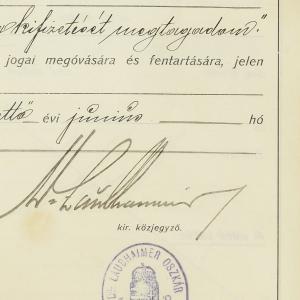 kifizetését megtagadom."
jogai megóvására és fentartására, jelen
évi június hó
Dr Laubhaimer
kir. közjegyző.
DR LAUBHAIMER OSZKÁR